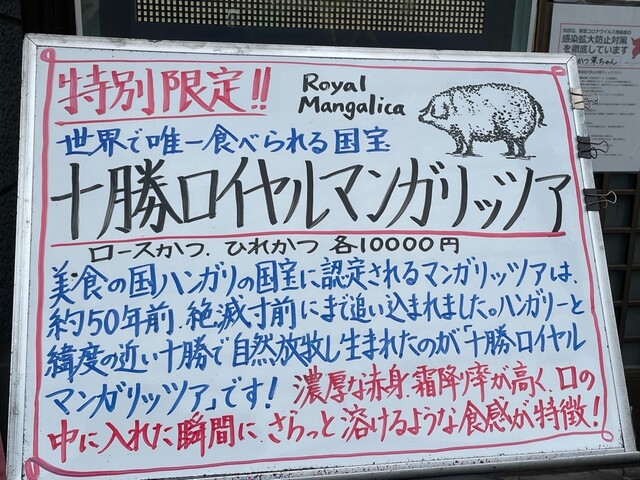 特別限定!!
Royal
Mangalica
世界で唯一食べられる国宝
十勝ロイヤルマンガリッツァ
ロースかつ.ひれかつ 各10000円
美食の国ハンガリの国宝に認定されるマンガリッツアは、
約50年前.絶滅寸前にまで追い込まれました。ハンガリーと
緯度の近い十勝で自然放牧し生まれたのが「十勝ロイヤル
マンガリッツァ」です! 濃厚な赤身.霜降り率が高く、口の
中に入れた瞬間に.さらっと溶けるような食感が特徴!
感染拡大防止対策
を徹底しています